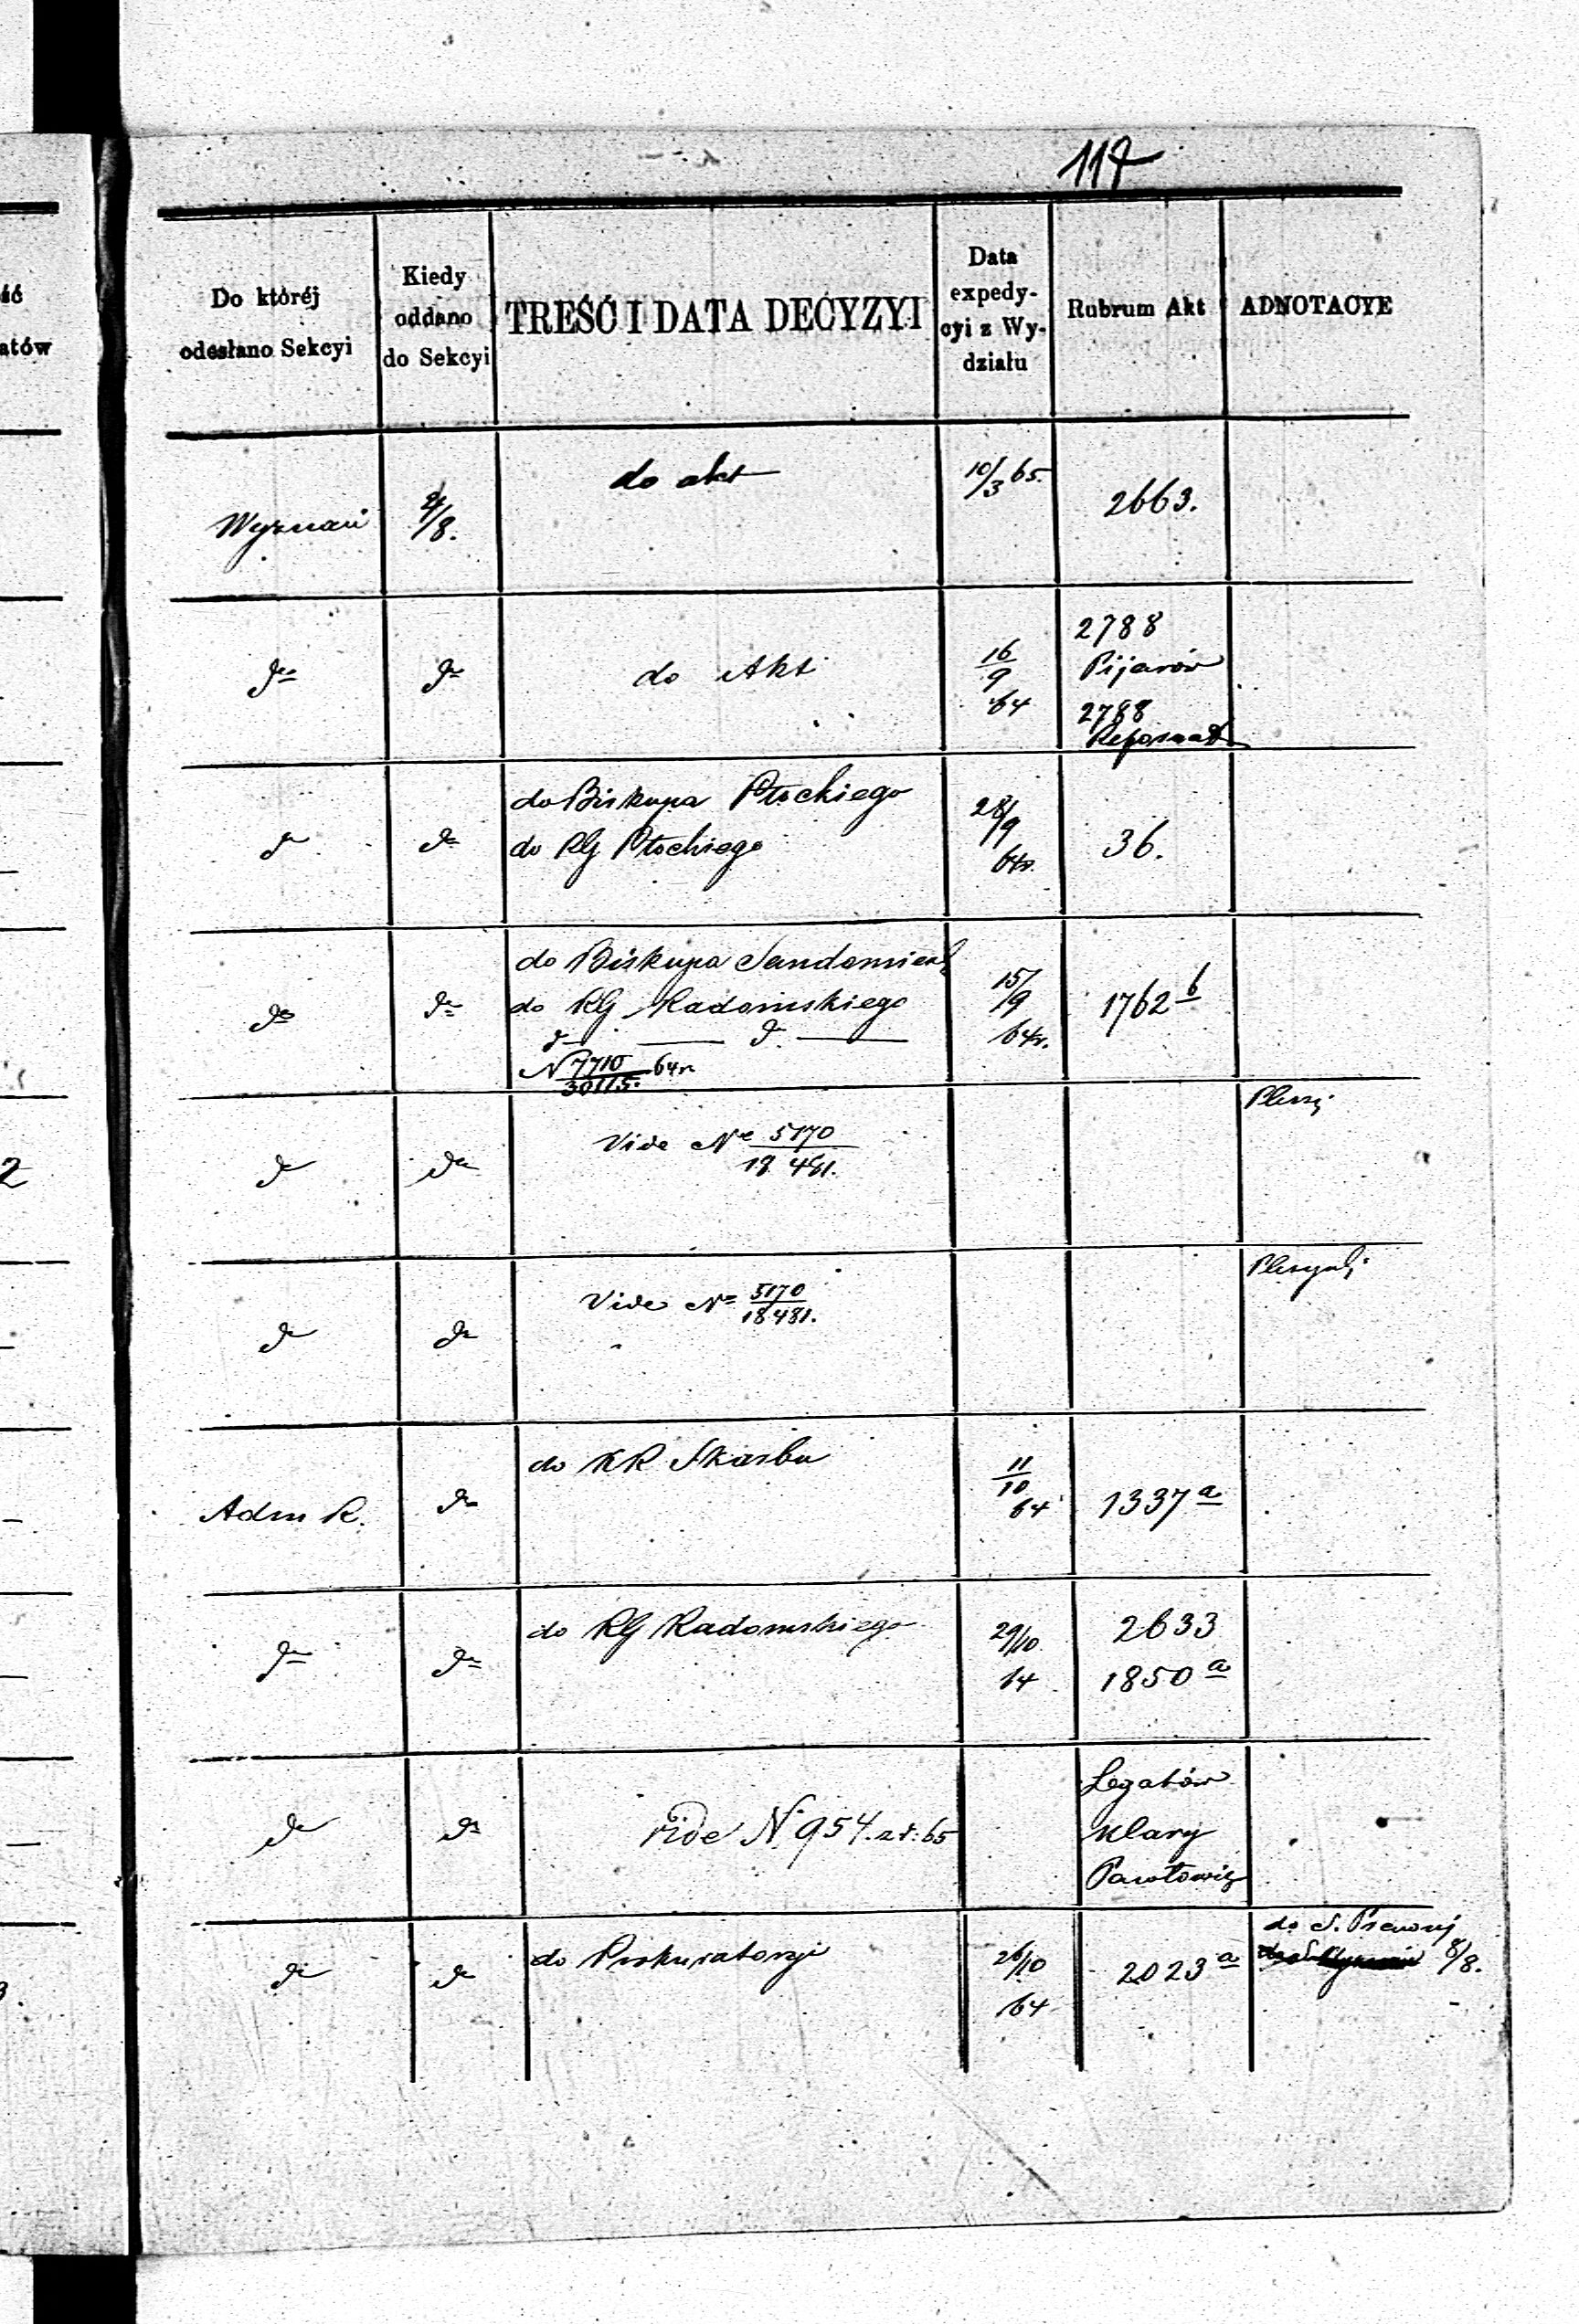 117
ść
atów
Do któréj
odesłano Sekcyi
Kiedy
oddano
do Sekcyi
TREŚĆ I DATA DECYZYI
Data
expedy-
cyi z Wy-
działu
Rubrum Akt
ADNOTACYE
Wyznań
4/8.
do akt
10/3 65.
2663.
do
do
do Akt
16/9
64
2788
Pijarów
2788
Reformat
do
do
do Biskupa Płockiego
do RG Płockiego
28/9
64r.
36.
do
do
do Biskupa Sandomiers
do RG Radomskiego
d d.
N 7710/30115. 64r
15/9
64r.
1762 b
2
do
do
Vide No 5170/18 481.
do
do
Vide No 5170/18481.
Adm R.
do
do KR Skarbu
11/10
64
1337 a
do
do
do RG Radomskiego
29/10
64
2633
1850 a
do
do
vide No 954. z r: 65
Legatów
Klary
Pawłowicz
do
do
do Prokuratoryi
26/10
64
2023 a
do S.
8/8.